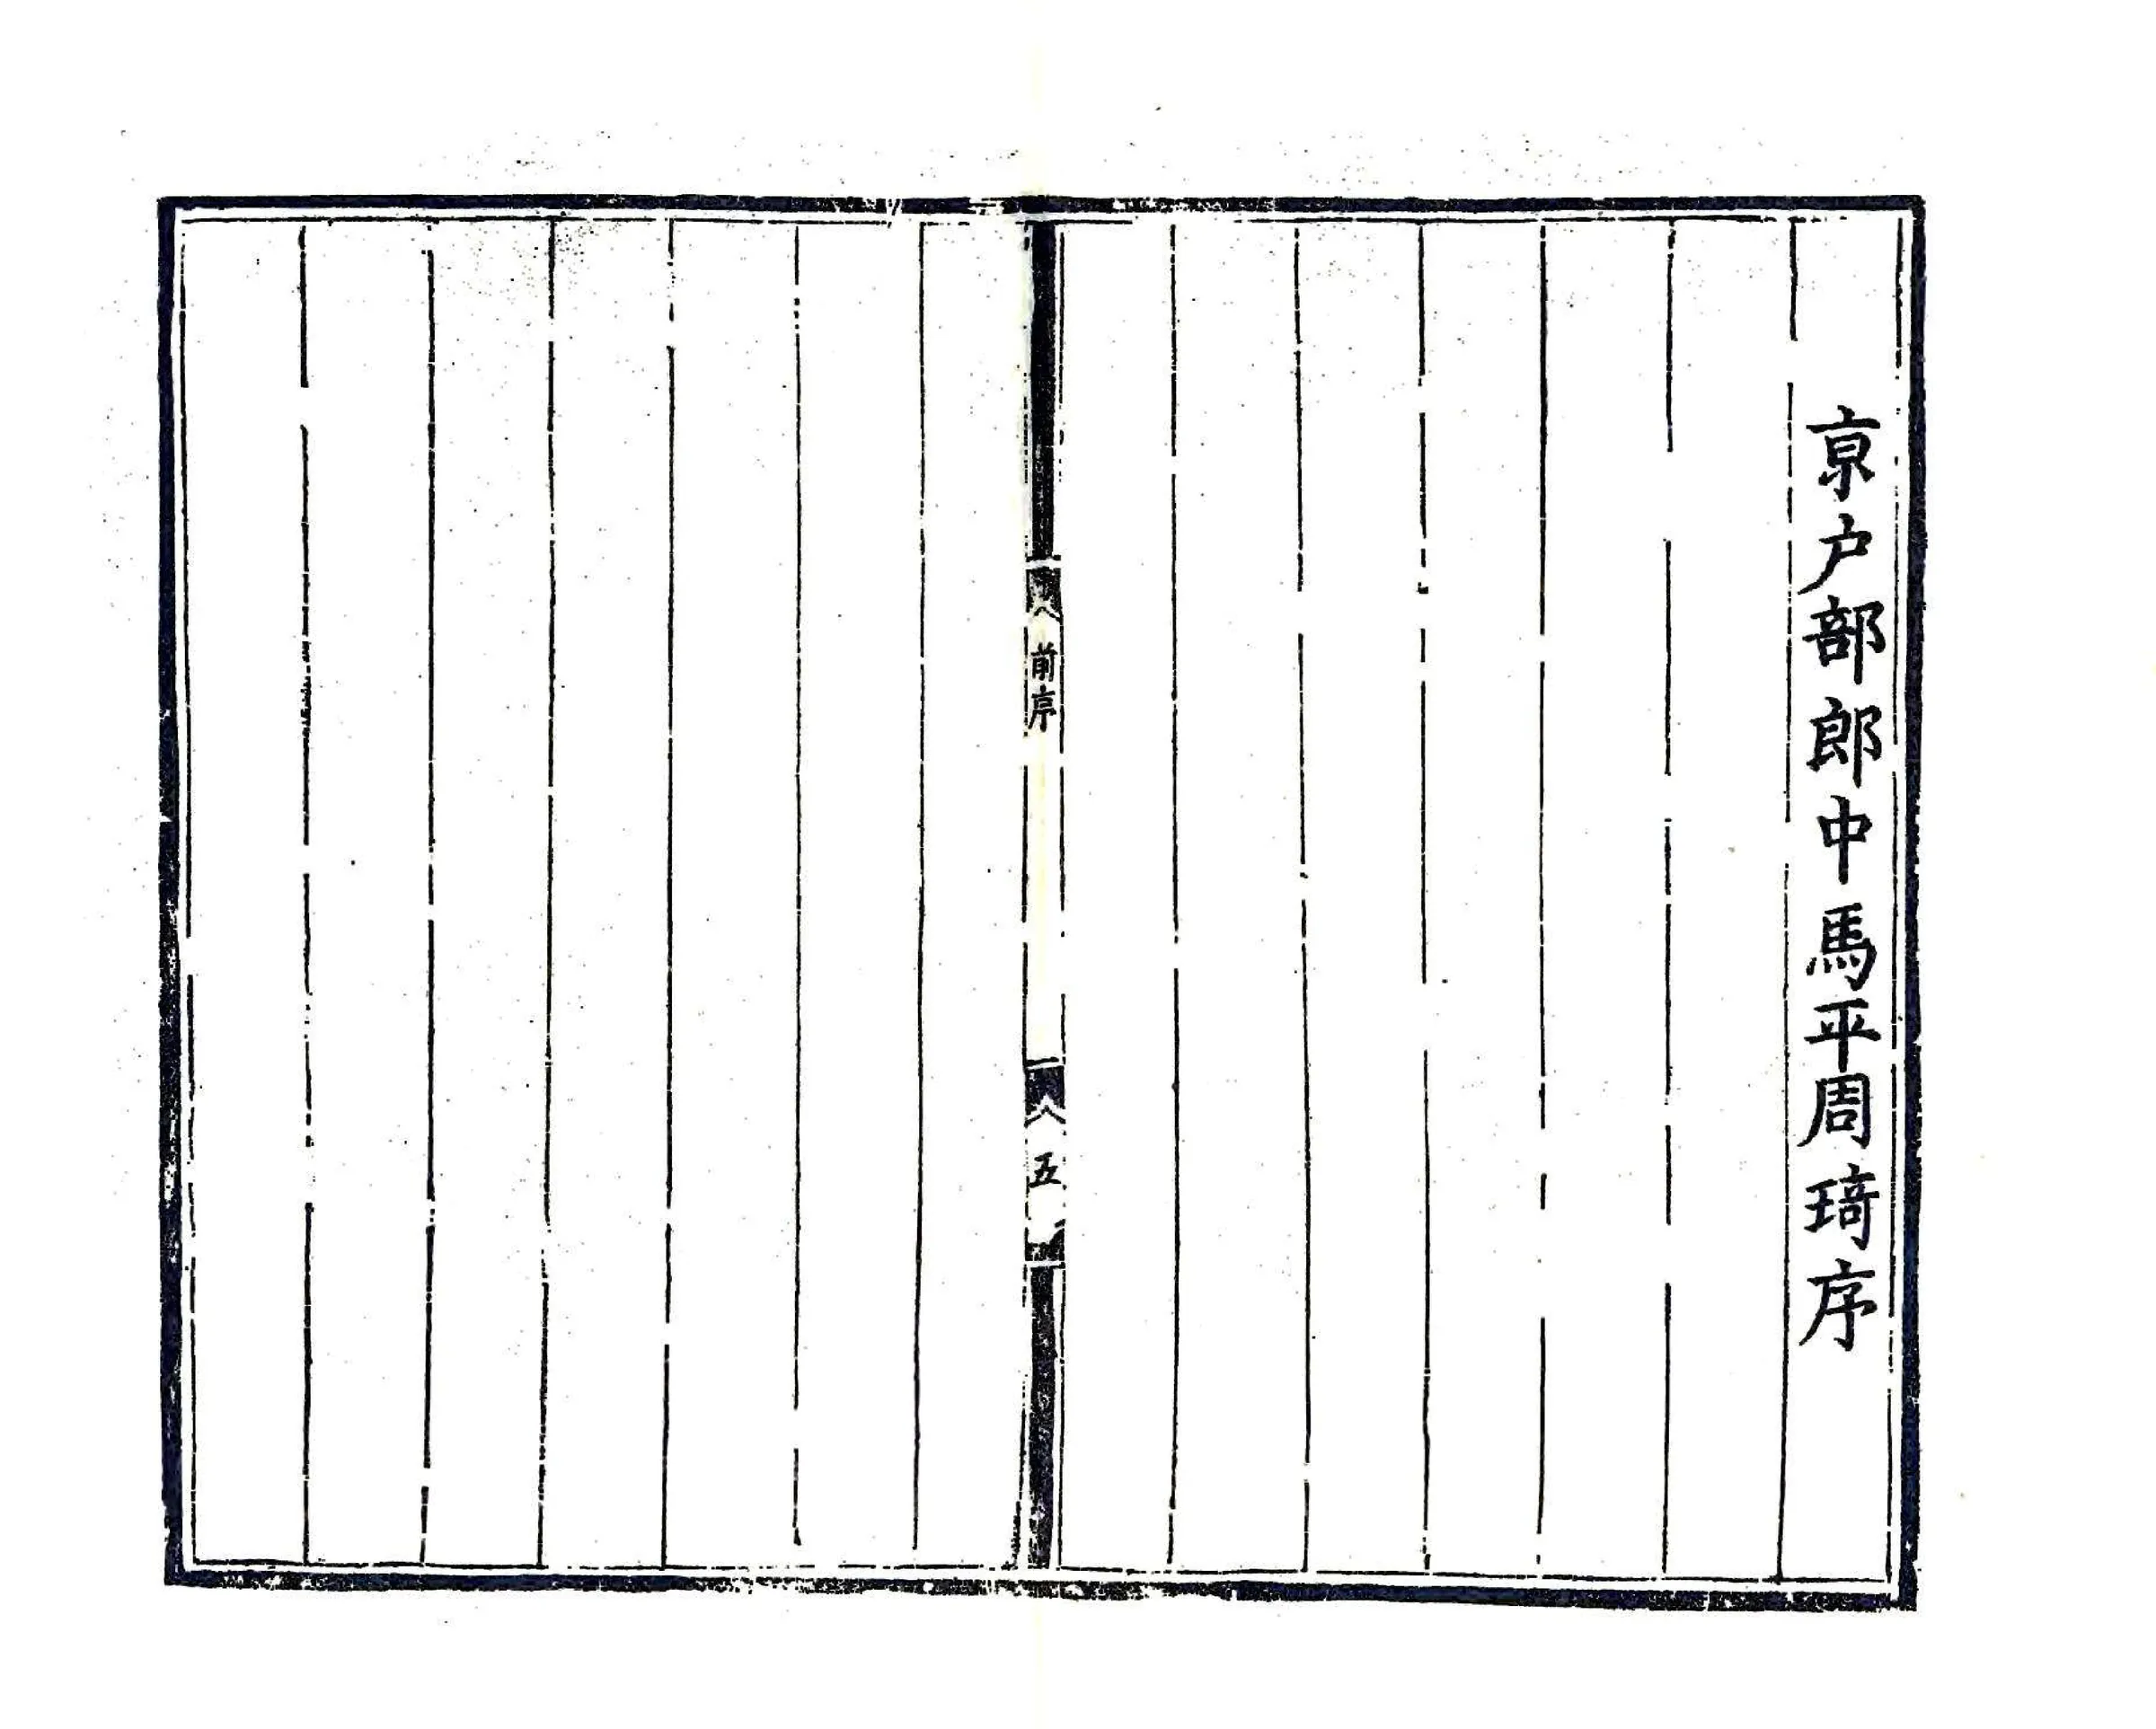 京户部郎中馬平周琦序
前序
五